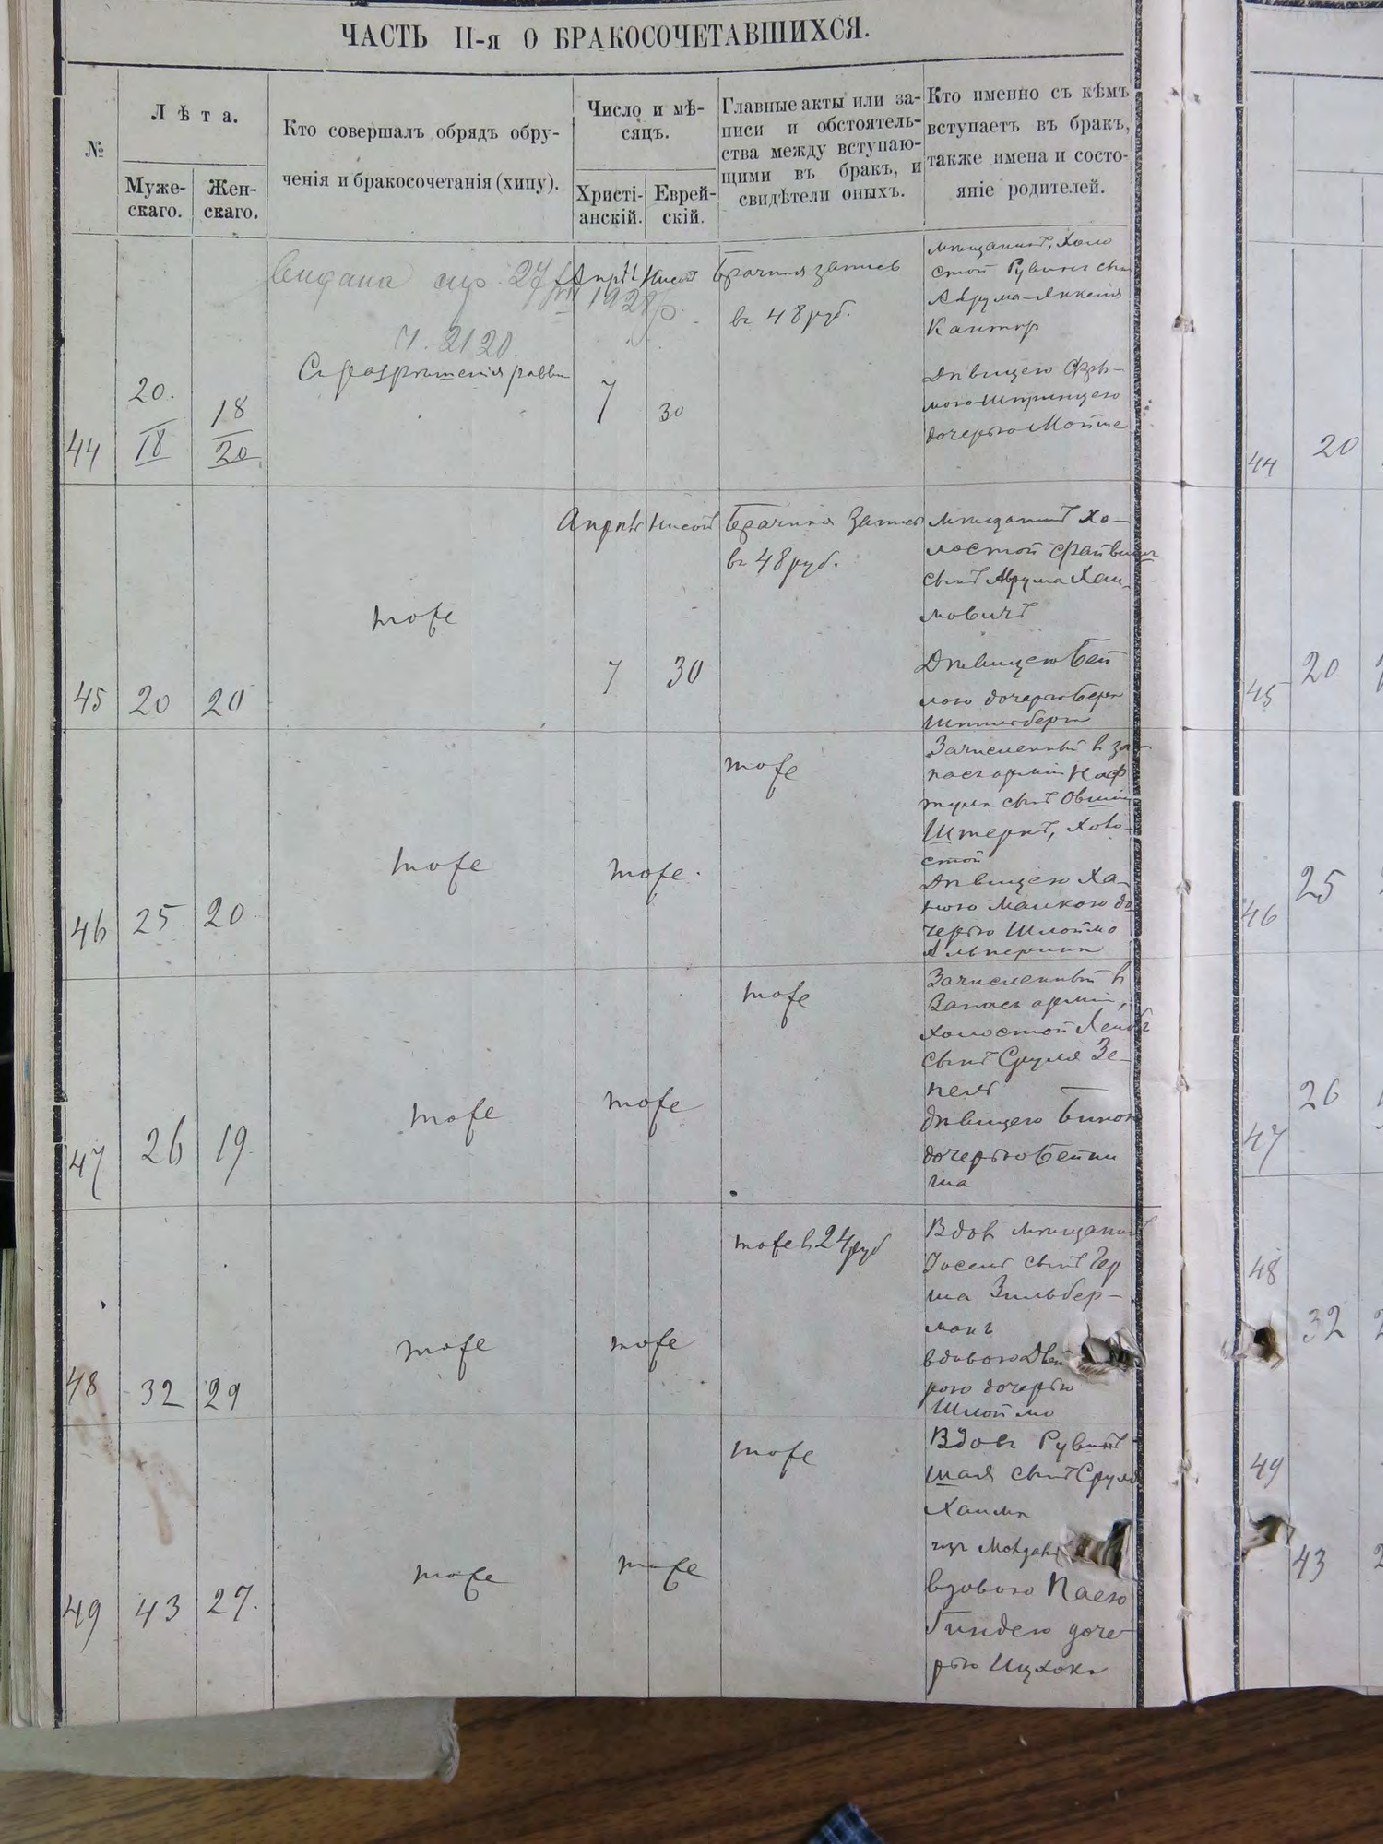 ЧАСТЬ II-я О БРАКОСОЧЕТАВШИХСЯ.
№
Лѣта.
Муже-
скаго.
Жен-
скаго.
Кто совершалъ обрядъ обру-
ченія и бракосочетанія (хипу).
Число и мѣ-
сяцъ.
Христі-
анскій.
Еврей-
скій.
Главные акты или за-
писи и обстоятель-
ства между вступаю-
щими въ бракъ, и
свидѣтели оныхъ.
Кто именно съ кѣмъ
вступаетъ въ бракъ,
также имена и состо-
яніе родителей.
44
20.
18
18
20
Видана 27
1928 р.
ч. 2120
Съ разрѣшенія
7
30
Брачная запись
въ 48 руб.
Мѣщанинъ, Холо
стой Рувинъ сынъ
Абрума-Янкеля
Канторъ
Дѣвицею
дочерью
45
20
20
тоже
Апрѣль
Нисонъ
7
30
Брачная запись
въ 48 руб.
Мѣщанинъ хо-
лостой
сынъ Абрума Хаи-
мовичъ
Дѣвицею Бей
лою дочерью Бера
46
25
20
тоже
тоже.
тоже
Зачисленный въ за-
пасъ арміи Наф
тула сынъ Овшія
Штернъ, холо-
стой
Дѣвицею Ха-
ною Малкою до
черью Шлоймо
Альперина
47
26
19.
тоже
тоже
тоже
Зачисленный въ
Запасъ арміи,
холостой Лейбъ
сынъ Сруля Зе-
дѣвицею
дочерью
48
32
29
тоже
тоже
тоже въ 24 руб
Вдовъ мѣщанинъ
Іосель сынъ Гер
ша Зильбер-
манъ
вдовою Двой
рою дочерью
Шлоймо
49
43
27.
тоже
тоже
тоже
Вдовъ Рувинъ
сынъ Сруля
Хаима
изъ
вдовою Паею
Гиндею доче-
рью Ицхока
44
20
45
20
46
25
47
26
48
32
49
43